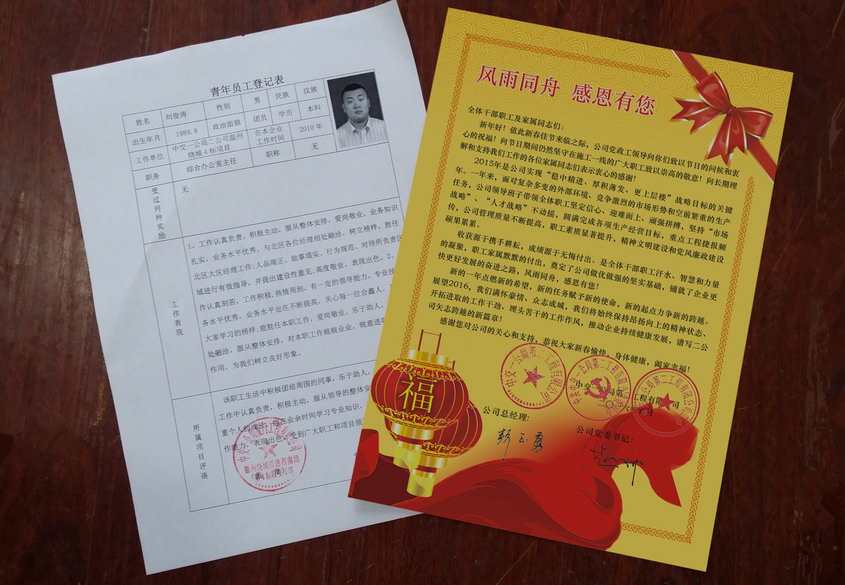 青年员工登记表
姓名 刘俊涛 性别 男 民族 汉族
出生年月 1989.9 政治面貌 团员 学历 本科
工作单位 中交一公局二公司温州绕城4标项目 在本企业工作时间 2010年
职务 综合办公室主任 职称 无
受过何种奖励 无
工作表现
1、工作认真负责,积极主动,服从整体安排,爱岗敬业,业务知识
扎实,业务水平优秀,与北区各位经理相处融洽,树立榜样,胜任
北区大区经理工作;人品端正、做事塌实、行为规范、对待所负责区
域进行有效指导,并提出建设性意见;高度敬业,表现出色。2、
作认真刻苦,工作积极,热情周到,有一定的领导能力,专业技
务水平优秀,业务水平也在不断提高,关心每一位合鑫人,
大家学习的榜样;能胜任本职工作,爱岗敬业,乐于助人,
处融洽,服从整体安排,对本职工作兢兢业业,锐意进
作用,为我们树立良好形象。
所属项目评语
该职工生活中积极团结周围的同事,乐于助人,
工作中认真负责,积极主动,服从领导的整体安
重个人的成长,在业余时间学习专业知识,
作能力,表现出色,受到广大职工和项目领
风雨同舟 感恩有您
全体干部职工及家属同志们:
新年好!值此新春佳节来临之际,公司党政工领导向你们致以节日的问候和衷
心的祝福!向节日期间仍然坚守在施工一线的广大职工致以崇高的敬意!向长期理
解和支持我们工作的各位家属同志们表示衷心的感谢!
2015年是公司实现“稳中精进、厚积薄发、更上层楼”战略目标的关键
年。一年来,面对复杂多变的外部环境、竞争激烈的市场形势和空前繁重的生产
任务,公司领导班子带领全体职工坚定信心、迎难而上、顽强拼搏,坚持“市场
战略”、“人才战略”不动摇,圆满完成各项生产经营目标,重点工程捷报频
传,公司管理质量不断提高,职工素质显著提升,精神文明建设和党风廉政建设
硕果累累。
收获源于携手耕耘,成绩源于无悔付出。是全体干部职工汗水、智慧和力量
的凝聚,职工家属默默的付出,奠定了公司做优做强的坚实基础,铺就了企业更
快更好发展的奋进之路,风雨同舟,感恩有您!
新的一年点燃新的希望,新的任务赋予新的使命,新的起点力争新的跨越。
展望2016,我们满怀豪情、众志成城,我们将始终保持昂扬向上的精神状态、
开拓进取的工作干劲、埋头苦干的工作作风,推动企业持续健康发展,谱写二公
司矢志跨越的新篇章!
感谢您对公司的关心和支持,恭祝大家新春愉快,身体健康,阖家幸福!
福
公司总经理:
公司党委书记: